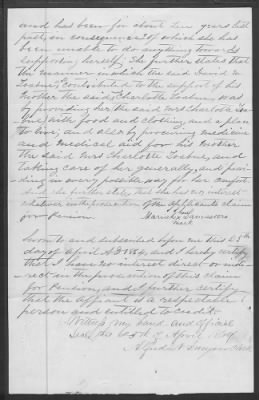 and has been for about ten years last
past, in consequence of which she has
been unable to do anything towards
supporting herself. She further states that
the manner in which the said David M.
contributed to the support of his
mother the said Charlotte was
by providing her the said Mrs Charlotte
with food and clothing and a place
to live, and also by procuring medicine
and medical aid for his mother
the said Mrs Charlotte and
taking care of her generally, and
in every possible way for her comfort.
she further states that she has no interest
whatever in the prosecution of the applicants claim
for Pension. her
Mariah x
mark
Sworn to and subscribed before me this 25th
day of April AD 1864, and I hereby certify
that I have no interest direct or indi-
rect in the prosecution of this claim
for Pension, and I further certify
that the affiant is a respectable
person and entitled to credit.
Witness my hand and official
Seal this 25th of April 1864